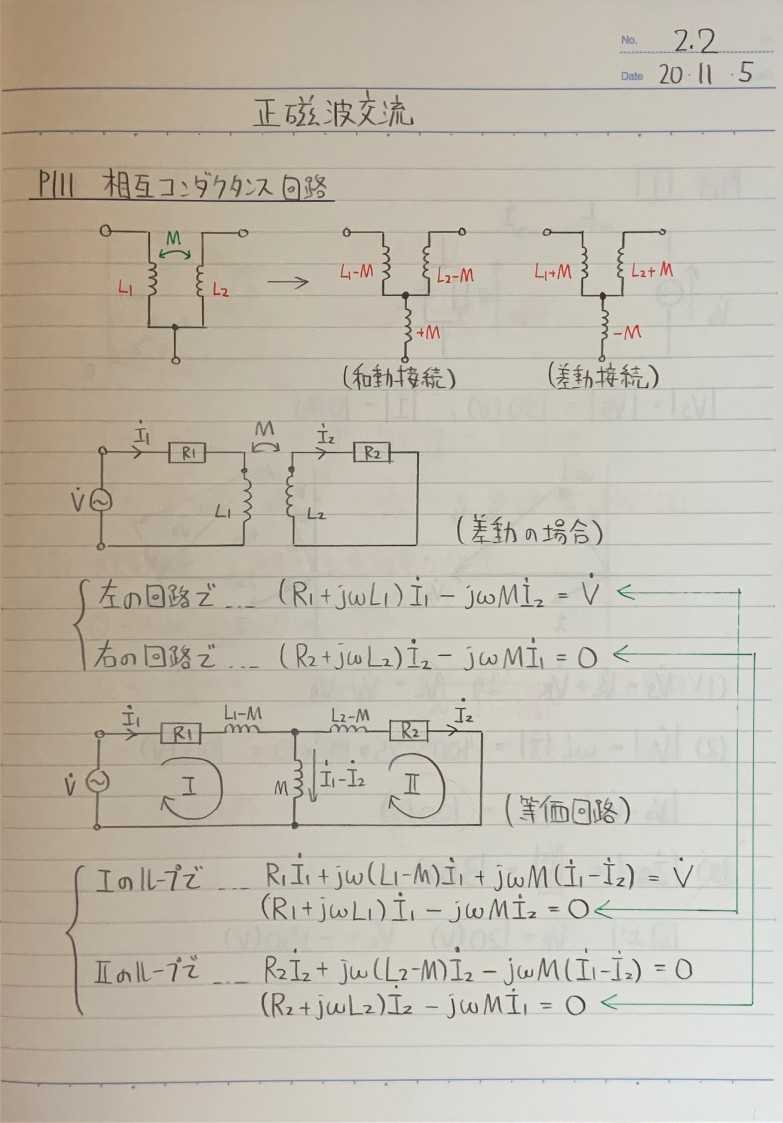 No. 2.2
Date 20・11・5
正磁波交流
P111 相互コンダクタンス回路
M
L1 L2
→
L1-M L2-M
+M
(和動接続)
L1+M L2+M
-M
(差動接続)
İ1 R1 M İ2 R2
V̇ L1 L2
(差動の場合)
左の回路で … (R1+jωL1)İ1-jωMİ2=V̇
右の回路で … (R2+jωL2)İ2-jωMİ1=0
İ1 R1 L1-M L2-M R2 İ2
V̇ I M İ1-İ2 II
(等価回路)
Iのループで … R1İ1+jω(L1-M)İ1+jωM(İ1-İ2)=V̇
(R1+jωL1)İ1-jωMİ2=0
IIのループで … R2İ2+jω(L2-M)İ2-jωM(İ1-İ2)=0
(R2+jωL2)İ2-jωMİ1=0